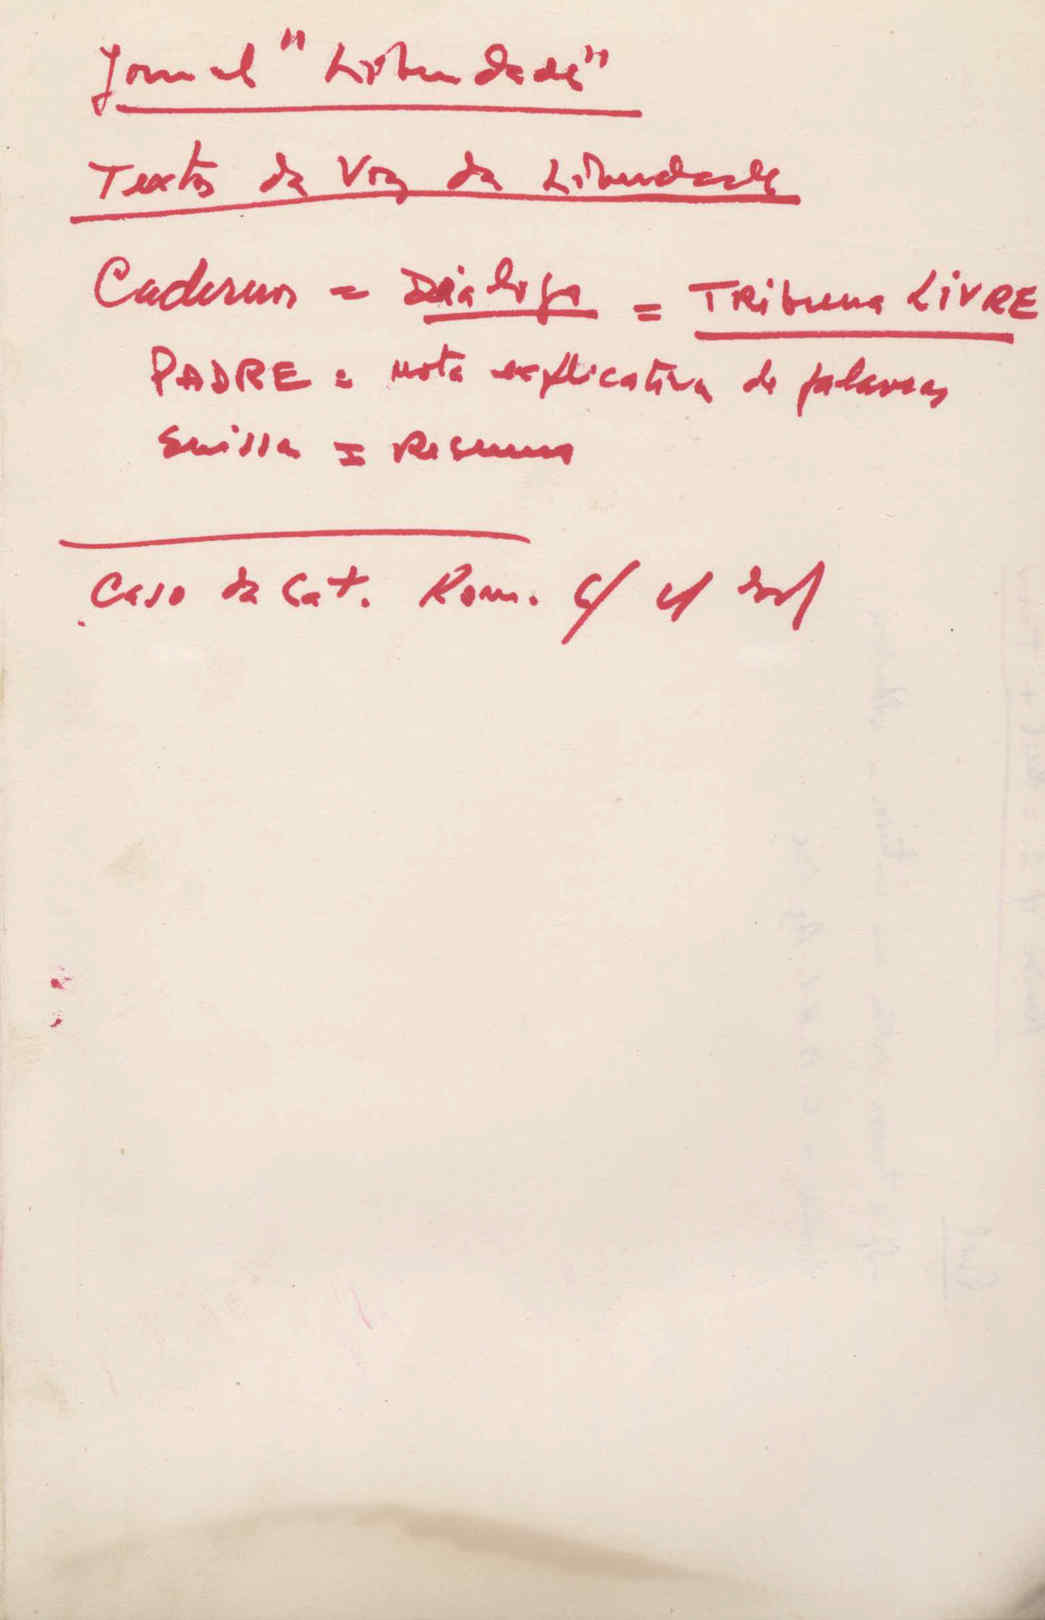 Jornal "Liberdade"
Textos da Voz da Liberdade
Cadernos = Diálogo = TRibuna LiVRE
PADRE = nota explicativa de palavras
Suissa = Resumo
Caso da Cat. Rom. c/